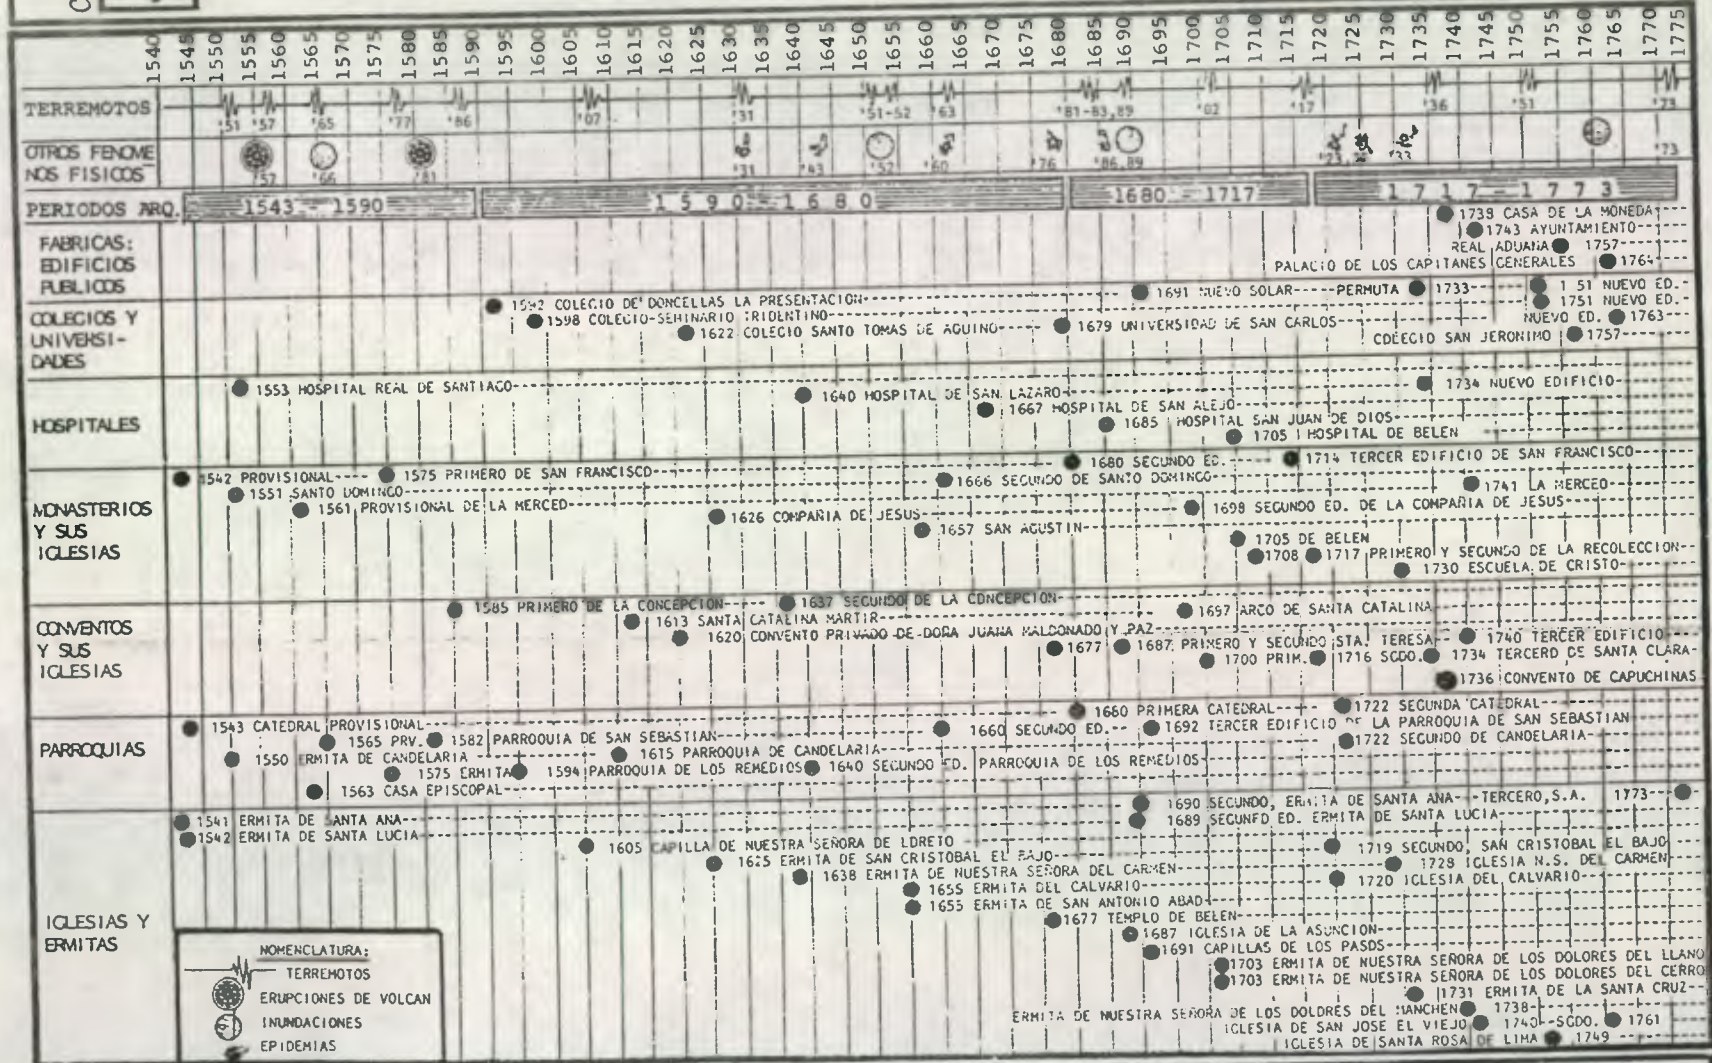 1540 1545 1550 1555 1560 1565 1570 1575 1580 1585 1590 1595 1600 1605 1610 1615 1620 1625 1630 1635 1640 1645 1650 1655 1660 1665 1670 1675 1680 1685 1690 1695 1700 1705 1710 1715 1720 1725 1730 1735 1740 1745 1750 1755 1760 1765 1770 1775
TERREMOTOS '51 '57 '65 '77 '86 '07 '31 '51-52 '63 '81-83,89 '02 '17 '36 '51 '73
OTROS FENOME
NOS FISICOS '57 '66 '81 '31 '43 '52 '60 '76 '86,89 '23 '33 '73
PERIODOS ARQ. 1543 - 1590 1590 - 1680 1680 - 1717 1717 - 1773
FABRICAS:
EDIFICIOS
PUBLICOS
1739 CASA DE LA MONEDA
1743 AYUNTAMIENTO
REAL ADUANA 1757
PALACIO DE LOS CAPITANES GENERALES 1764
COLEGIOS Y
UNIVERSI-
DADES
1592 COLEGIO DE DONCELLAS LA PRESENTACION 1691 NUEVO SOLAR PERMUTA 1733 1 51 NUEVO ED.
1598 COLEGIO-SEMINARIO TRIDENTINO 1751 NUEVO ED.
1622 COLEGIO SANTO TOMAS DE AQUINO 1679 UNIVERSIDAD DE SAN CARLOS NUEVO ED. 1763
COLEGIO SAN JERONIMO 1757
HOSPITALES
1553 HOSPITAL REAL DE SANTIAGO 1640 HOSPITAL DE SAN LAZARO 1734 NUEVO EDIFICIO
1667 HOSPITAL DE SAN ALEJO
1685 HOSPITAL SAN JUAN DE DIOS
1705 HOSPITAL DE BELEN
MONASTERIOS
Y SUS
IGLESIAS
1542 PROVISIONAL 1575 PRIMERO DE SAN FRANCISCO 1680 SEGUNDO ED. 1714 TERCER EDIFICIO DE SAN FRANCISCO
1551 SANTO DOMINGO 1666 SEGUNDO DE SANTO DOMINGO
1561 PROVISIONAL DE LA MERCED 1741 LA MERCED
1626 COMPAÑIA DE JESUS 1698 SEGUNDO ED. DE LA COMPAÑIA DE JESUS
1657 SAN AGUSTIN
1705 DE BELEN
1708 1717 PRIMERO Y SEGUNDO DE LA RECOLECCION
1730 ESCUELA DE CRISTO
CONVENTOS
Y SUS
IGLESIAS
1585 PRIMERO DE LA CONCEPCION 1637 SEGUNDO DE LA CONCEPCION
1613 SANTA CATALINA MARTIR 1697 ARCO DE SANTA CATALINA
1620 CONVENTO PRIVADO DE DOÑA JUANA MALDONADO Y PAZ
1677 1687 PRIMERO Y SEGUNDO STA. TERESA 1740 TERCER EDIFICIO
1700 PRIM. 1716 SGDO. 1734 TERCERO DE SANTA CLARA
1736 CONVENTO DE CAPUCHINAS
PARROQUIAS
1543 CATEDRAL PROVISIONAL 1680 PRIMERA CATEDRAL 1722 SEGUNDA CATEDRAL
1565 PRV. 1582 PARROQUIA DE SAN SEBASTIAN 1660 SEGUNDO ED. 1692 TERCER EDIFICIO DE LA PARROQUIA DE SAN SEBASTIAN
1550 ERMITA DE CANDELARIA 1615 PARROQUIA DE CANDELARIA 1722 SEGUNDO DE CANDELARIA
1575 ERMITA 1594 PARROQUIA DE LOS REMEDIOS 1640 SEGUNDO ED. PARROQUIA DE LOS REMEDIOS
1563 CASA EPISCOPAL
IGLESIAS Y
ERMITAS
1541 ERMITA DE SANTA ANA 1690 SEGUNDO, ERMITA DE SANTA ANA TERCERO, S.A. 1773
1542 ERMITA DE SANTA LUCIA 1689 SEGUNFD ED. ERMITA DE SANTA LUCIA
1605 CAPILLA DE NUESTRA SEÑORA DE LORETO
1625 ERMITA DE SAN CRISTOBAL EL BAJO 1719 SEGUNDO, SAN CRISTOBAL EL BAJO
1638 ERMITA DE NUESTRA SEÑORA DEL CARMEN 1728 IGLESIA N.S. DEL CARMEN
1655 ERMITA DEL CALVARIO 1720 IGLESIA DEL CALVARIO
1655 ERMITA DE SAN ANTONIO ABAD
1677 TEMPLO DE BELEN
1687 IGLESIA DE LA ASUNCION
1691 CAPILLAS DE LOS PASOS
1703 ERMITA DE NUESTRA SEÑORA DE LOS DOLORES DEL LLANO
1703 ERMITA DE NUESTRA SEÑORA DE LOS DOLORES DEL CERRO
1731 ERMITA DE LA SANTA CRUZ
ERMITA DE NUESTRA SEÑORA DE LOS DOLORES DEL MANCHEN 1738
IGLESIA DE SAN JOSE EL VIEJO 1740 SGDO. 1761
IGLESIA DE SANTA ROSA DE LIMA 1749
NOMENCLATURA:
TERREMOTOS
ERUPCIONES DE VOLCAN
INUNDACIONES
EPIDEMIAS